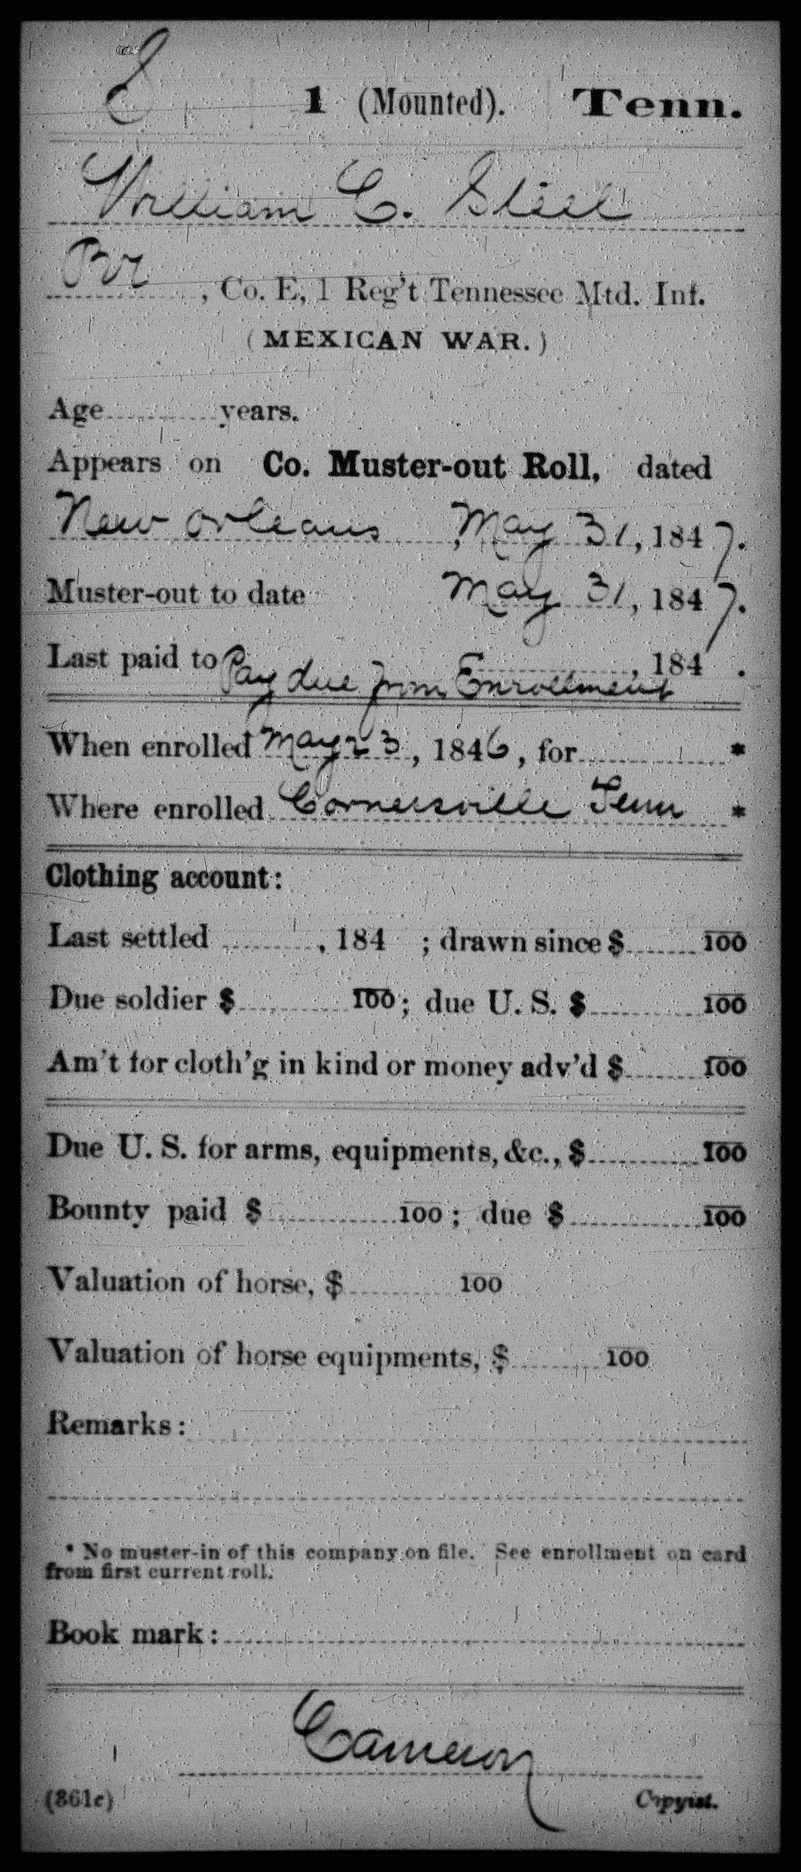 S 1 (Mounted). Tenn.
William C. Steel
Pvt, Co. E, 1 Reg't Tennessee Mtd. Inf.
(MEXICAN WAR.)
Age years.
Appears on Co. Muster-out Roll, dated
New Orleans, May 31, 1847.
Muster-out to date May 31, 1847.
Last paid to , 184 .
Pay due from Enrollment
When enrolled May 23, 1846, for *
Where enrolled Cornersville Tenn *
Clothing account:
Last settled , 184 ; drawn since $ 100
Due soldier $ 100; due U. S. $ 100
Am't for cloth'g in kind or money adv'd $ 100
Due U. S. for arms, equipments, &c., $ 100
Bounty paid $ 100; due $ 100
Valuation of horse, $ 100
Valuation of horse equipments, $ 100
Remarks:
* No muster-in of this company on file. See enrollment on card
from first current roll.
Book mark:
Cameron
(861c) Copyist.